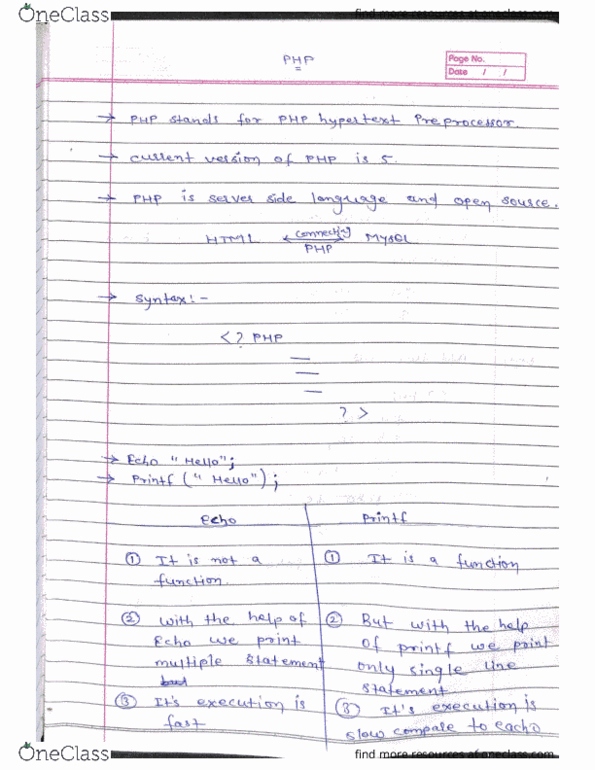 OneClass
find more resources at oneclass.com
PHP
Page No.
Date / /
→ PHP stands for PHP hypertext Preprocessor.
→ current version of PHP is 5.
→ PHP is server side language and open source.
HTML connecting MySQL
PHP
→ Syntax:-
<? PHP
? >
→ Echo "Hello";
→ Printf ("Hello");
Echo Printf
① It is not a ① It is a function
function.
② with the help of ② But with the help
Echo we print of printf we print
multiple statement only single line
statement
③ It's execution is ③ It's execution is
fast slow compare to echo
OneClass
find more resources at oneclass.com